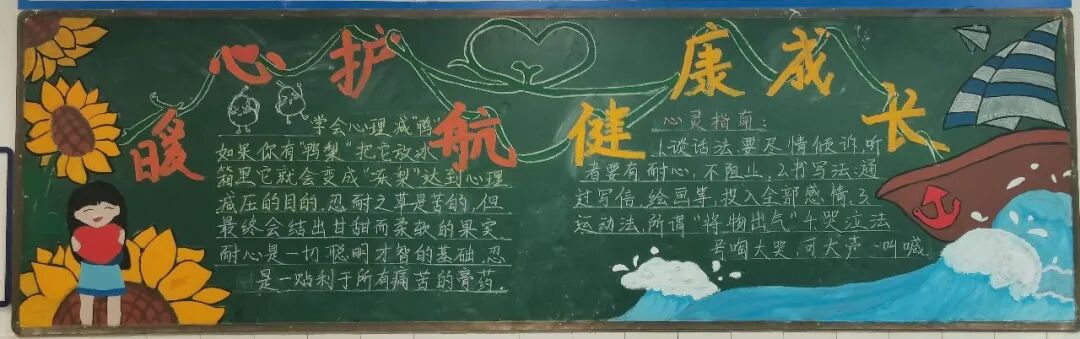 暖心护航 健康成长
学会心理减“鸭”
如果你有“鸭梨”把它放冰
箱里它就会变成“冻梨”达到心理
减压的目的，忍耐之草是苦的，但
最终会结出甘甜而柔软的果实
耐心是一切聪明才智的基础，忍
是一贴利于所有痛苦的膏药。
心灵指南：
1.谈话法：要尽情倾诉，听
者要有耐心，不阻止，2.书写法：通
过写信，绘画等，投入全部感情，3.
运动法，所谓“将物出气”4.哭泣法
号啕大哭，可大声叫喊